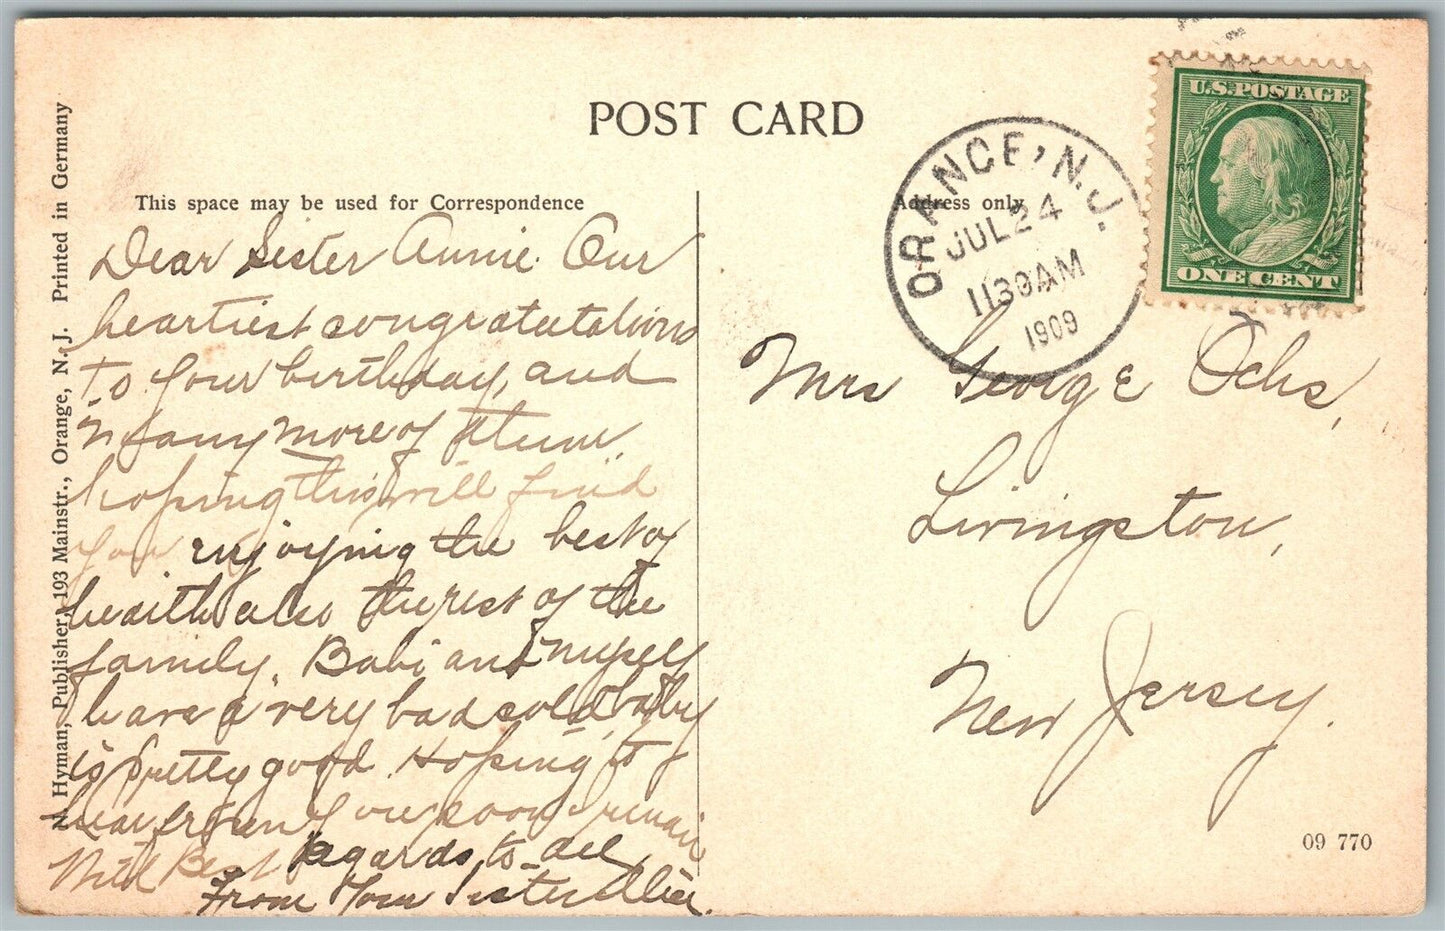 POST CARD
This space may be used for Correspondence
Address only
ORANGE, N.J.
JUL 24
1130AM
1909
U.S. POSTAGE
ONE CENT
N. Hyman, Publisher, 193 Mainstr., Orange, N. J. Printed in Germany
Dear Sister Annie. Our
heartiest congratutations
to your birthday, and
many more of them.
hoping this will find
you enjoying the best of
health also the rest of the
family. Babi and myself
have a very bad cold, baby
is pretty good. Hoping to
hear from you soon I remain
With Best regards to all,
From Your Sister Alice.
Mrs George Ochs,
Livingston,
New Jersey.
09 770